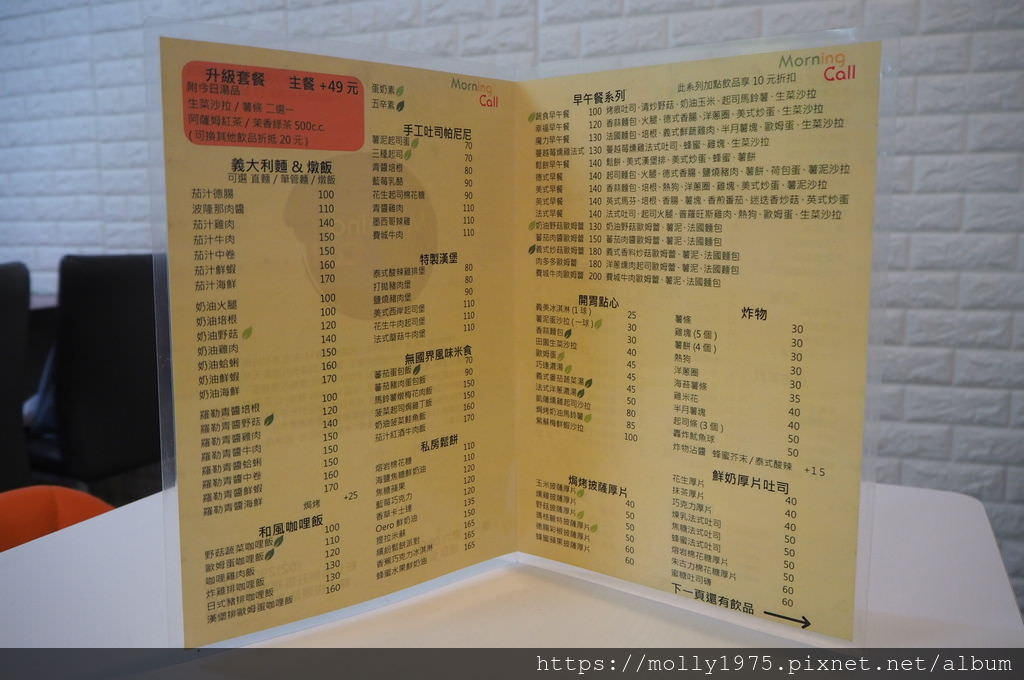 升級套餐 主餐 +49 元
附今日湯品
生菜沙拉 / 薯條 二選一
阿薩姆紅茶 / 茉香綠茶 500c.c.
( 可換其他飲品折抵 20 元 )
義大利麵 & 燉飯
可選 直麵 / 筆管麵 / 燉飯
茄汁德腸 100
波隆那肉醬 110
茄汁雞肉 140
茄汁牛肉 150
茄汁中卷 150
茄汁鮮蝦 160
茄汁海鮮 170
奶油火腿 100
奶油培根 100
奶油野菇 120
奶油雞肉 140
奶油蛤蜊 150
奶油鮮蝦 160
奶油海鮮 170
羅勒青醬培根 100
羅勒青醬野菇 120
羅勒青醬雞肉 140
羅勒青醬牛肉 150
羅勒青醬蛤蜊 150
羅勒青醬中卷 150
羅勒青醬鮮蝦 160
羅勒青醬海鮮 170
焗烤 +25
和風咖哩飯
野菇蔬菜咖哩飯 100
歐姆蛋咖哩飯 110
咖哩雞肉飯 120
炸雞排咖哩飯 130
日式豬排咖哩飯 130
漢堡排歐姆蛋咖哩飯 160
Morning Call
蛋奶素
五辛素
手工吐司帕尼尼
薯泥起司蛋 70
三種起司 70
青醬培根 80
藍莓乳酪 90
花生起司棉花糖 90
青醬雞肉 110
墨西哥辣雞 110
費城牛肉 110
特製漢堡
泰式酸辣雞排堡 80
打拋豬肉堡 80
鹽燒豬肉堡 90
美式西岸起司堡 110
花生牛肉起司堡 110
法式蘑菇牛肉堡 110
無國界風味米食
蕃茄蛋包飯 70
蕃茄豬肉蛋包飯 90
馬鈴薯燉梅花肉飯 150
菠菜起司焗雞丁飯 150
奶油菠菜鮭魚飯 160
茄汁紅酒牛肉飯 170
私房鬆餅
熔岩棉花糖 110
海鹽焦糖鮮奶油 110
焦糖蘋果 120
藍莓巧克力 120
香草卡士達 120
Oero 鮮奶油 135
提拉米蘇 150
繽紛鬆餅派對 165
香蕉巧克力冰淇淋 165
蜂蜜水果鮮奶油 165
Morning Call
早午餐系列 此系列加點飲品享 10 元折扣
蔬食早午餐 100 烤痕吐司、清炒野菇、奶油玉米、起司馬鈴薯、生菜沙拉
幸福早午餐 120 香蒜麵包、火腿、德式香腸、洋蔥圈、美式炒蛋、生菜沙拉
魔力早午餐 130 法國麵包、培根、義式鮮蔬雞肉、半月薯塊、歐姆蛋、生菜沙拉
蔓越莓燻雞法式 130 蔓越莓燻雞法式吐司、蜂蜜、雞塊、生菜沙拉
鬆餅早午餐 140 鬆餅、美式漢堡排、美式炒蛋、蜂蜜、薯餅
德式早餐 140 起司麵包、火腿、德式香腸、鹽燒豬肉、薯餅、荷包蛋、薯泥沙拉
美式早餐 140 香蒜麵包、培根、熱狗、洋蔥圈、雞塊、美式炒蛋、薯泥沙拉
英式早餐 140 英式馬芬、培根、香腸、薯塊、香煎蕃茄、迷迭香炒菇、英式炒蛋
法式早餐 140 法式吐司、起司火腿、普羅旺斯雞肉、熱狗、歐姆蛋、生菜沙拉
奶油野菇歐姆蕾 130 奶油野菇歐姆蕾、薯泥、法國麵包
蕃茄肉醬歐姆蕾 150 蕃茄肉醬歐姆蕾、薯泥、法國麵包
義式炒菇歐姆蕾 180 義式香料炒菇歐姆蕾、薯泥、法國麵包
肉多多歐姆蕾 180 洋蔥燻肉起司歐姆蕾、薯泥、法國麵包
費城牛肉歐姆蕾 200 費城牛肉歐姆蕾、薯泥、法國麵包
開胃點心
義美冰淇淋 (1 球 ) 25
薯泥蛋沙拉 ( 一球 ) 30
香蒜麵包 30
田園生菜沙拉 40
歐姆蛋 40
巧達濃湯 45
義式番茄蔬菜湯 45
法式洋蔥濃湯 45
凱薩燻雞起司沙拉 50
焗烤奶油馬鈴薯 80
紫蘇梅鮮蝦沙拉 85
100
焗烤披薩厚片
玉米披薩厚片 40
燻雞披薩厚片 50
野菇披薩厚片 50
瑪格麗特披薩厚片 50
德腸彩椒披薩厚片 60
鮪魚蘋果披薩厚片 60
炸物
薯條 30
雞塊 (5 個 ) 30
薯餅 (4 個 ) 30
熱狗 30
洋蔥圈 30
海苔薯條 35
雞米花 35
半月薯塊 40
起司條 (3 個 ) 40
轟炸魷魚球 50
50
炸物沾醬 蜂蜜芥末 / 泰式酸辣 +15
鮮奶厚片吐司
花生厚片 40
抹茶厚片 40
巧克力厚片 40
煉乳法式吐司 50
焦糖法式吐司 50
蜂蜜法式吐司 50
熔岩棉花糖厚片 50
朱古力棉花糖厚片 60
蜜糖吐司磚 60
下一頁還有飲品
https://molly1975.pixnet.net/album